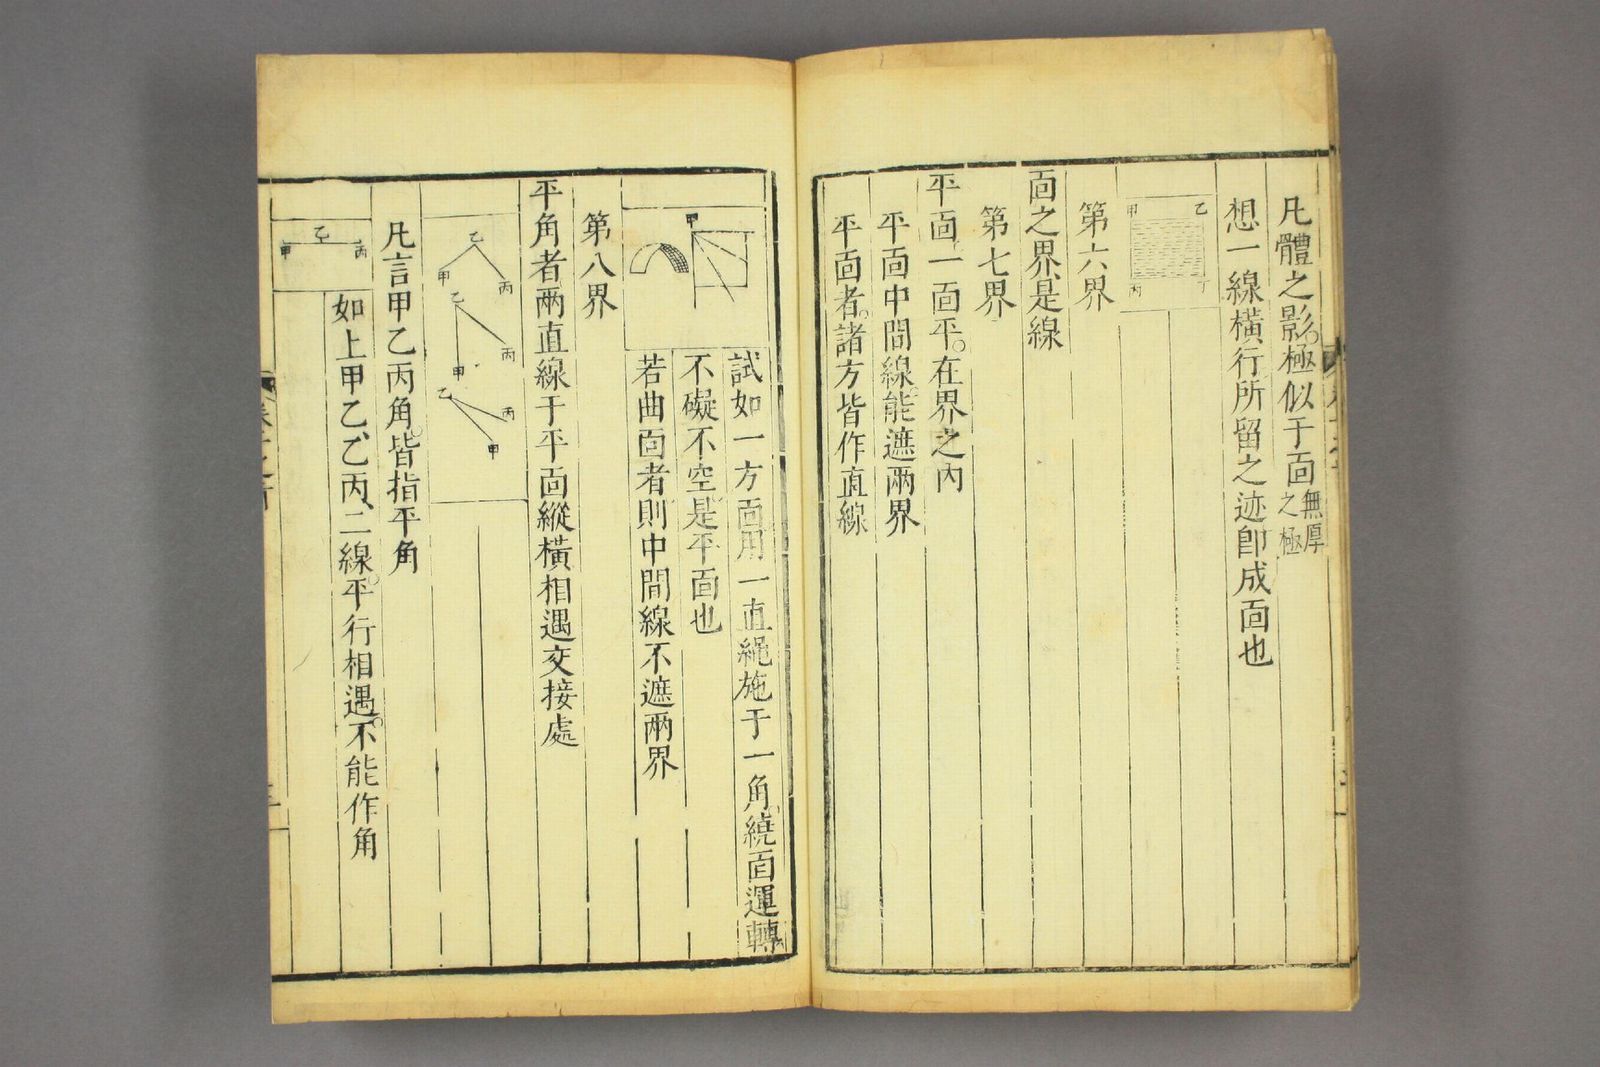 凡體之影極似于面無厚之極
想一線橫行所留之迹即成面也
甲 乙 丙 丁
第六界
面之界是線
第七界
平面一面平。在界之內
平面中間線能遮兩界
平面者。諸方皆作直線
甲
試如一方面用一直繩施于一角繞面運轉
不礙不空是平面也
若曲面者則中間線不遮兩界
第八界
平角者兩直線于平面縱橫相遇交接處
乙 甲 丙
乙 甲 丙
乙 丙 甲
凡言甲乙丙角。皆指平角
甲 乙 丙
如上甲乙、乙丙、二線。平行相遇。不能作角